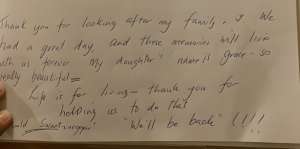 Thank you for looking after my family. We
had a great day, and these memories will live
with us forever. My daughter's name is Grace - so
really beautiful =
Life is for living - thank you for
helping us to do that
"We'll be back" !!!!